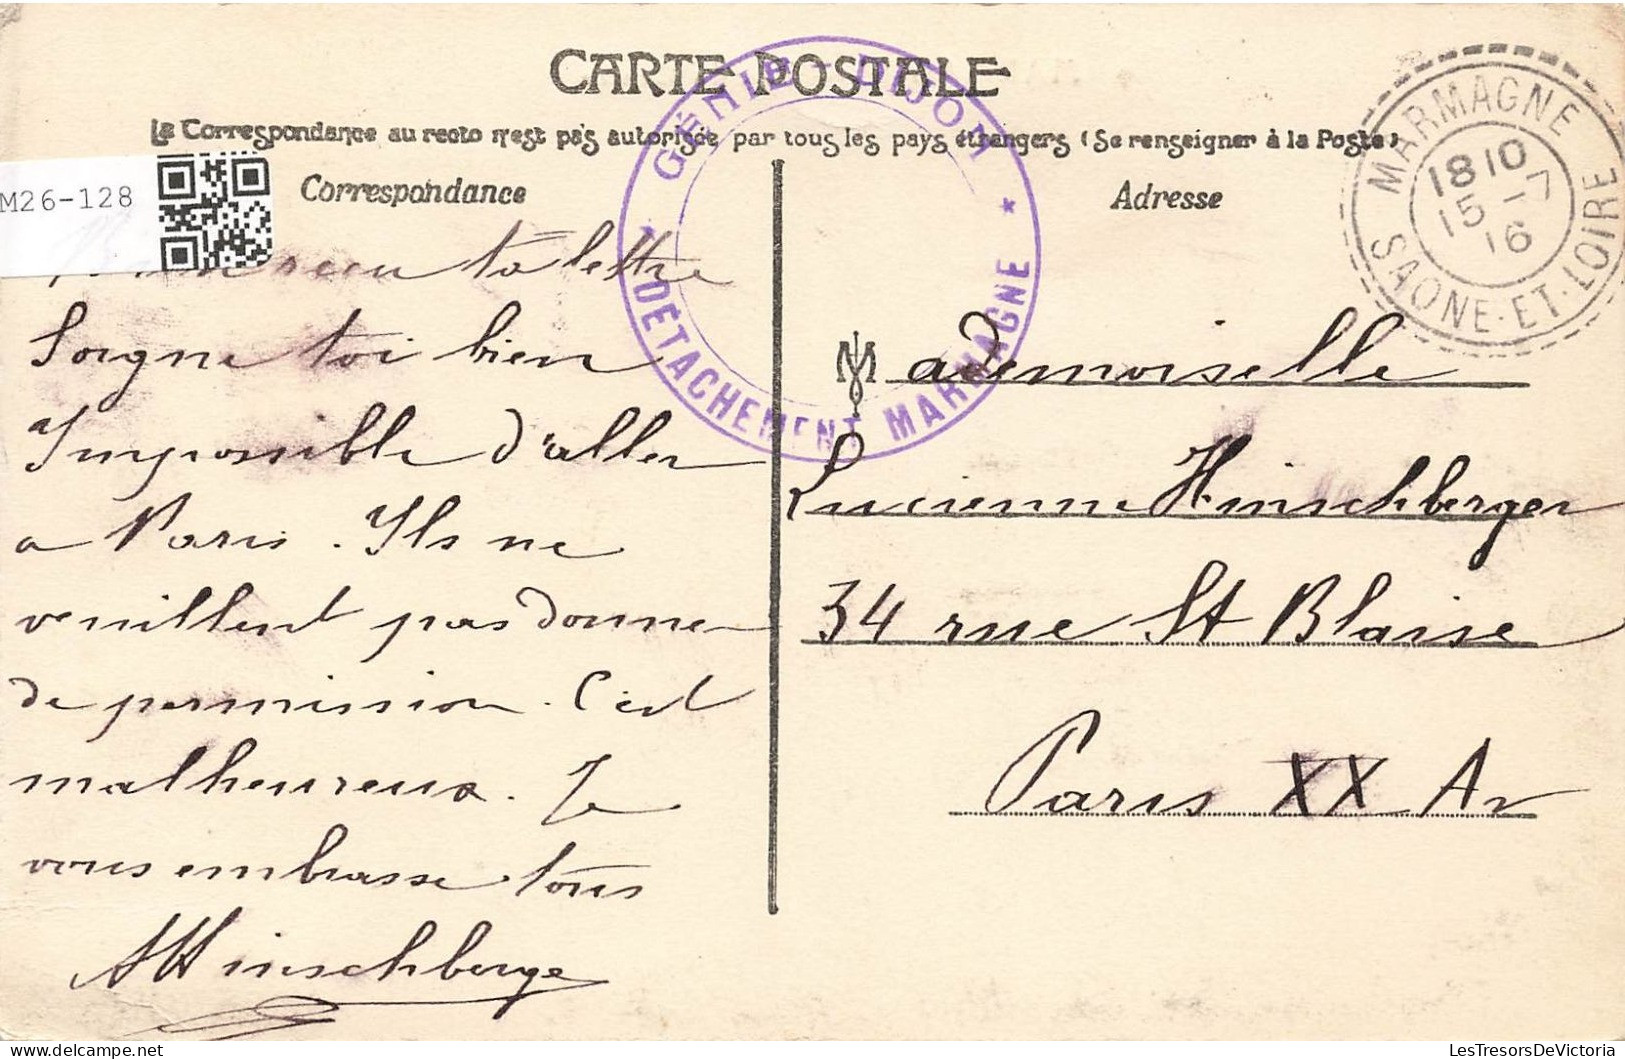 CARTE POSTALE
La Correspondance au recto n'est pas autorisée par tous les pays étrangers (Se renseigner à la Poste)
M26-128
Correspondance
reçu ta lettre
Soigne toi bien
Impossible d'aller
a Paris. Ils ne
veuillent pas donner
de permission. C'est
malheureux. Je
vous embrasse tous
AHinschberge
GÉNIE - DIJON
* DÉTACHEMENT MARMAGNE *
MARMAGNE
18 10
15 - 7
16
SAONE-ET-LOIRE
Adresse
Mademoiselle
Lucienne Hinschberger
34 rue St Blaise
Paris XX Ar
LesTresorsDeVictoria